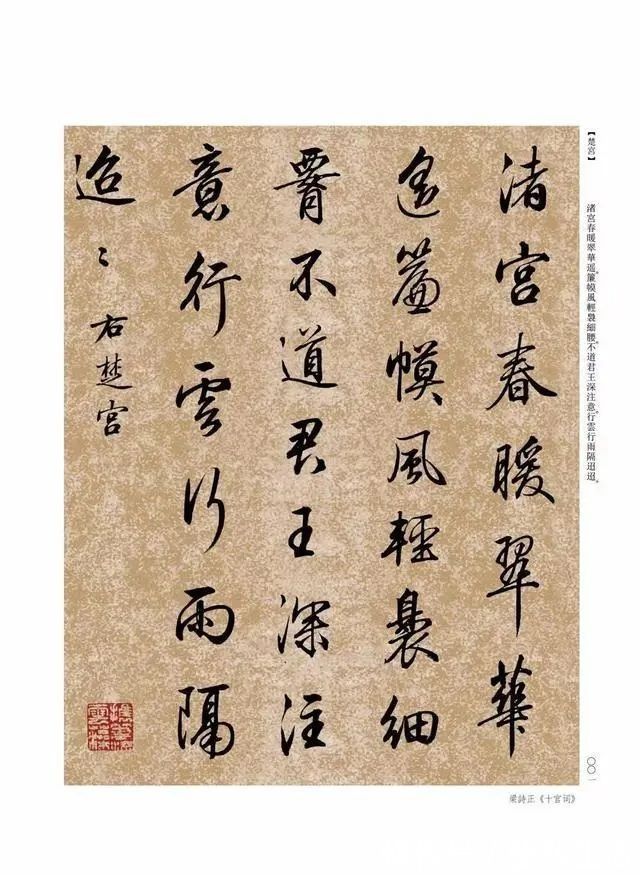 渚宮春暖翠華
遥簾幙風輕裊細
腰不道君王深注
意行雲行雨隔
迢〻
右楚宮
【楚宮】
渚宮春暖翠華遥。簾幙風輕裊細腰。不道君王深注意。行雲行雨隔迢迢。
〇〇一
梁詩正《十宮词》